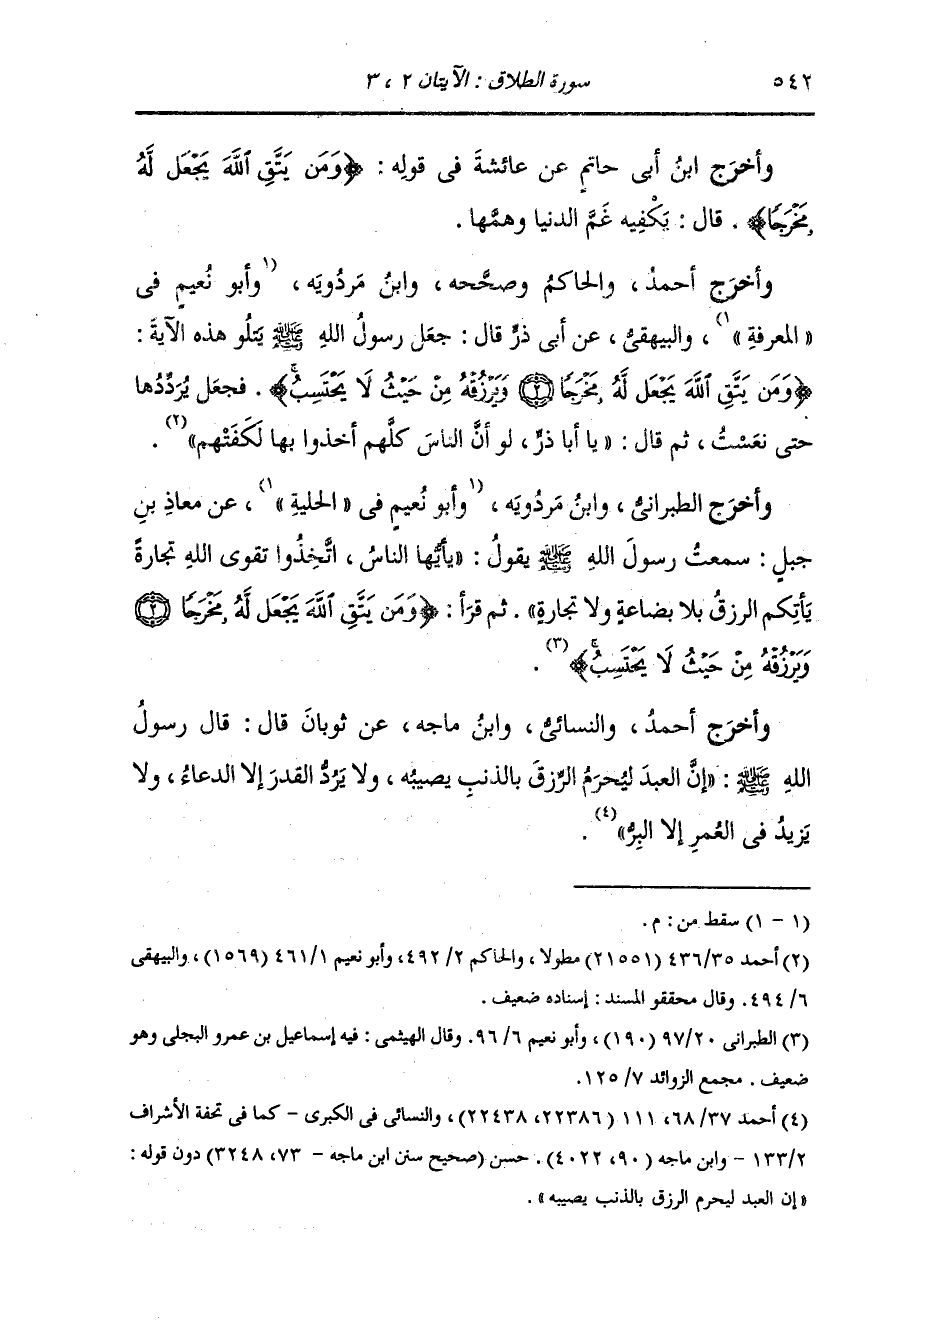 ٥٤٢ سورة الطلاق : الآيتان ٢ ، ٣
وأخرَج ابنُ أبى حاتمٍ عن عائشةَ فى قولِه : ﴿وَمَن يَتَّقِ ٱللَّهَ يَجْعَل لَّهُۥ
مَخْرَجًا﴾ . قال : يَكْفِيه غَمَّ الدنيا وهمَّها .
وأخرَج أحمدُ ، والحاكمُ وصحَّحه ، وابنُ مَرْدُويَه ، (١وأبو نُعيمٍ فى
« المعرفةِ »١) ، والبيهقىُّ ، عن أبى ذرٍّ قال : جعَل رسولُ اللهِ ﷺ يَتلُو هذه الآيةَ :
﴿وَمَن يَتَّقِ ٱللَّهَ يَجْعَل لَّهُۥ مَخْرَجًا ۝٢ وَيَرْزُقْهُ مِنْ حَيْثُ لَا يَحْتَسِبُۚ﴾ . فجعَل يُرَدِّدُها
حتى نعَسْتُ ، ثم قال : « يا أبا ذرٍّ ، لو أنَّ الناسَ كلَّهم أخذوا بها لَكَفَتْهم»(٢) .
وأخرَج الطبرانىُّ ، وابنُ مَرْدُويَه ، (١وأبو نُعيمٍ فى « الحليةِ »١) ، عن معاذِ بنِ
جبلٍ : سمعتُ رسولَ اللهِ ﷺ يقولُ : «يأيُّها الناسُ ، اتَّخِذُوا تقوى اللهِ تجارةً
يَأْتِكم الرزقُ بلا بضاعةٍ ولا تجارةٍ» . ثم قرَأ : ﴿وَمَن يَتَّقِ ٱللَّهَ يَجْعَل لَّهُۥ مَخْرَجًا ۝٢
وَيَرْزُقْهُ مِنْ حَيْثُ لَا يَحْتَسِبُۚ﴾(٣) .
وأخرَج أحمدُ ، والنسائىُّ ، وابنُ ماجه ، عن ثوبانَ قال : قال رسولُ
اللهِ ﷺ : «إنَّ العبدَ ليُحرَمُ الرِّزقَ بالذنبِ يصيبُه ، ولا يَرُدُّ القدرَ إلا الدعاءُ ، ولا
يَزيدُ فى العُمرِ إلا البِرُّ»(٤) .
(١ - ١) سقط من : م .
(٢) أحمد ٤٣٦/٣٥ (٢١٥٥١) مطولا ، والحاكم ٢/ ٤٩٢، وأبو نعيم ٤٦١/١ (١٥٦٩) ، والبيهقى
٦/ ٤٩٤. وقال محققو المسند : إسناده ضعيف .
(٣) الطبرانى ٩٧/٢٠ (١٩٠) ، وأبو نعيم ٦/ ٩٦. وقال الهيثمى : فيه إسماعيل بن عمرو البجلى وهو
ضعيف . مجمع الزوائد ٧/ ١٢٥.
(٤) أحمد ٣٧/ ٦٨، ١١١ (٢٢٣٨٦، ٢٢٤٣٨) ، والنسائى فى الكبرى - كما فى تحفة الأشراف
١٣٣/٢ - وابن ماجه (٩٠، ٤٠٢٢) . حسن (صحيح سنن ابن ماجه - ٧٣، ٣٢٤٨) دون قوله :
«إن العبد ليحرم الرزق بالذنب يصيبه» .